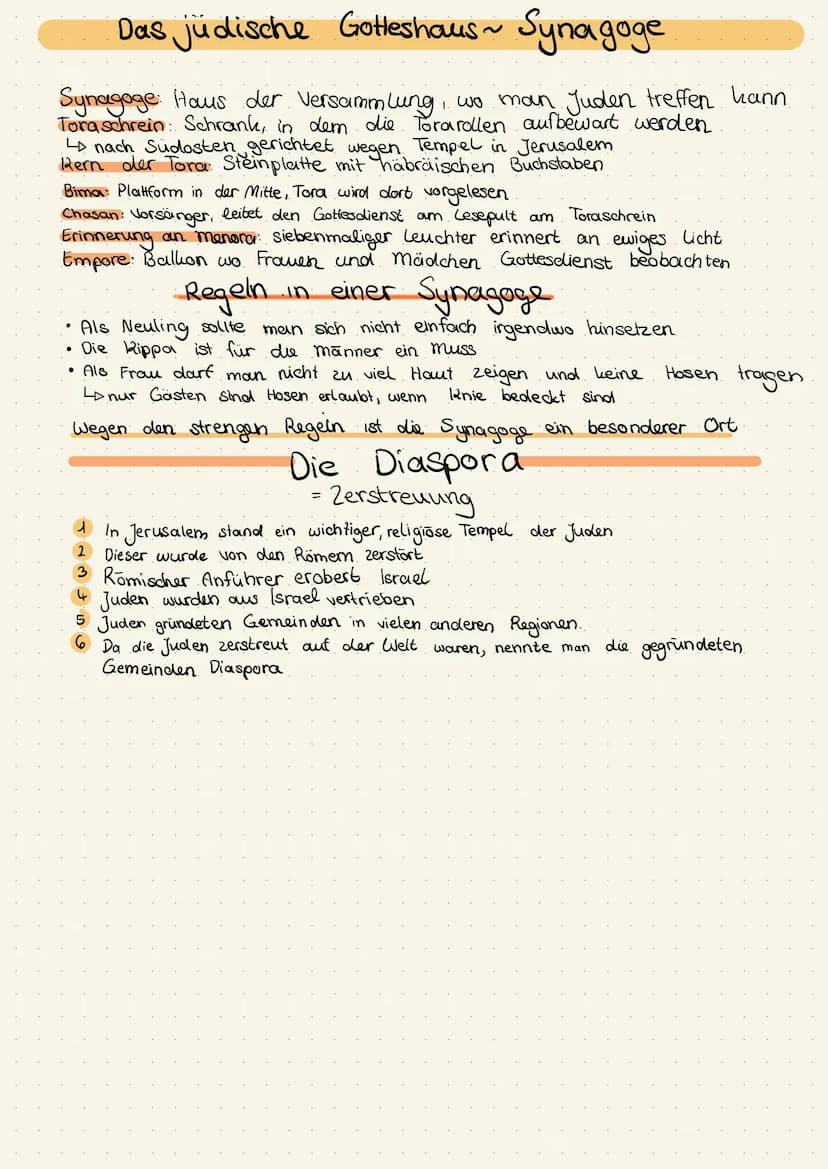 Das jüdische Gotteshaus ~ Synagoge
Synagoge: Haus der Versammlung, wo man Juden treffen kann
Toraschrein: Schrank, in dem die Torarollen aufbewart werden
↳ nach Südosten gerichtet wegen Tempel in Jerusalem
Kern der Tora: Steinplatte mit häbräischen Buchstaben
Bima: Plattform in der Mitte, Tora wird dort vorgelesen
Chasan: Vorsänger, leitet den Gottesdienst am Lesepult am Toraschrein
Erinnerung an menora: siebenmaliger Leuchter erinnert an ewiges Licht
Empore: Balkon wo Frauen und Mädchen Gottesdienst beobachten
Regeln in einer Synagoge
• Als Neuling sollte man sich nicht einfach irgendwo hinsetzen
• Die Kippa ist für die männer ein muss
• Als Frau darf man nicht zu viel Haut zeigen und keine Hosen tragen
↳ nur Gästen sind Hosen erlaubt, wenn Knie bedeckt sind
Wegen den strengen Regeln ist die Synagoge ein besonderer Ort
Die Diaspora
= Zerstreuung
1 In Jerusalem stand ein wichtiger, religiöse Tempel der Juden
2 Dieser wurde von den Römern zerstört
3 Römischer Anführer erobert Israel
4 Juden wurden aus Israel vertrieben
5 Juden gründeten Gemeinden in vielen anderen Regionen.
6 Da die Juden zerstreut auf der Welt waren, nennte man die gegründeten
Gemeinden Diaspora